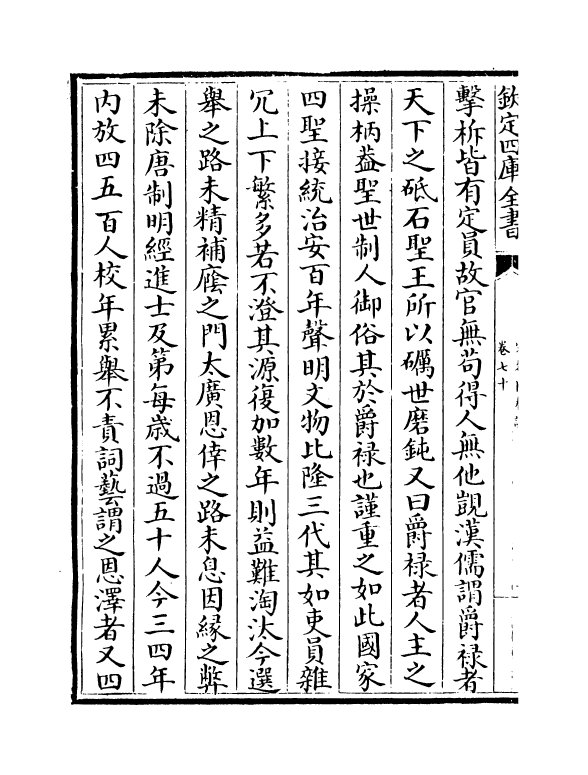 欽定四庫全書
卷七十
擊柝皆有定員故官無苟得人無他覬漢儒謂爵禄者
天下之砥石聖王所以礪世磨鈍又曰爵禄者人主之
操柄葢聖世制人御俗其於爵禄也謹重之如此國家
四聖接統治安百年聲明文物比隆三代其如吏員雜
冗上下繁多若不澄其源復加數年則益難淘汰今選
舉之路未精補廕之門太廣恩倖之路未息因緣之弊
未除唐制明經進士及第每嵗不過五十人今三四年
内放四五百人校年累舉不責詞藝謂之恩澤者又四